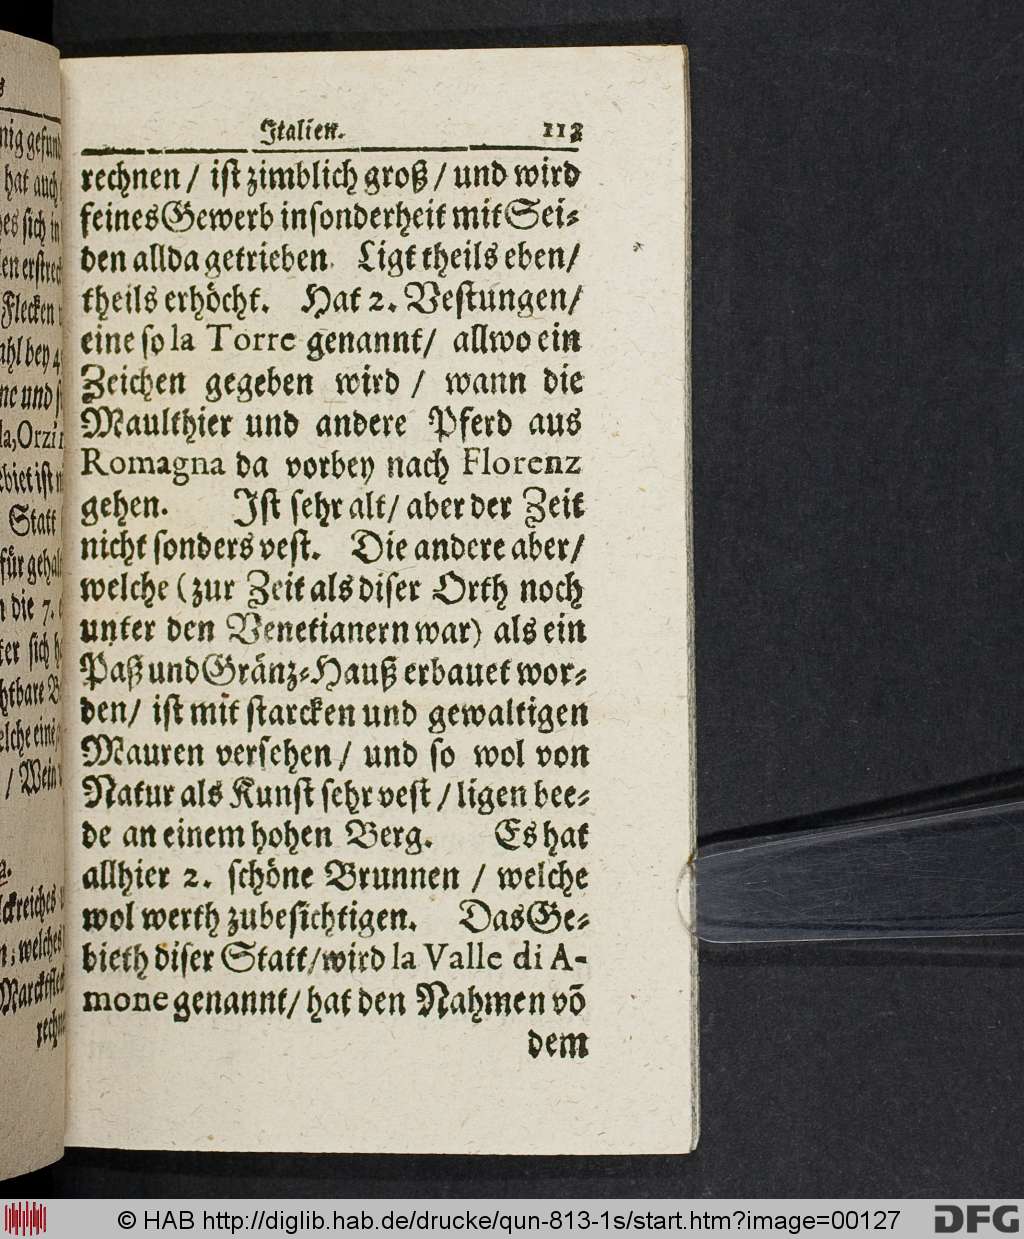 Italien. 113
rechnen / ist zimblich groß / und wird
feines Gewerb insonderheit mit Sei-
den allda getrieben. Ligt theils eben /
theils erhöcht. Hat 2. Vestungen /
eine so la Torre genannt / allwo ein
Zeichen gegeben wird / wann die
Maulthier und andere Pferd aus
Romagna da vorbey nach Florenz
gehen. Ist sehr alt / aber der Zeit
nicht sonders vest. Die andere aber /
welche (zur Zeit als diser Orth noch
unter den Venetianern war) als ein
Paß und Gränz-Hauß erbauet wor-
den / ist mit starcken und gewaltigen
Mauren versehen / und so wol von
Natur als Kunst sehr vest / ligen bee-
de an einem hohen Berg. Es hat
allhier 2. schöne Brunnen / welche
wol werth zubesichtigen. Das Ge-
bieth diser Statt / wird la Valle di A-
mone genannt / hat den Nahmen võ
dem
© HAB http://diglib.hab.de/drucke/qun-813-1s/start.htm?image=00127
DFG